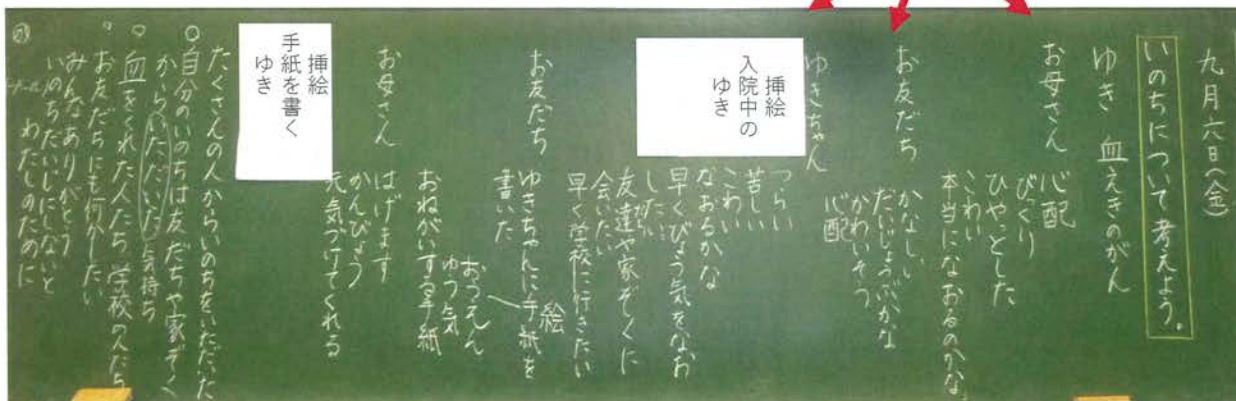 九月六日(金)
いのちについて考えよう。
ゆき 血えきのがん
お母さん
心配
びっくり
ひやっとした
こわい
本当になおるのかな
お友だち
かなしい
だいじょうぶかな
かわいそう
心配
ゆきちゃん
つらい
苦しい
こわい
なおるかな
早くびょう気をなお
したい
友達や家ぞくに
会いたい
早く学校に行きたい
挿絵
入院中の
ゆき
お友だち
ゆきちゃんに手紙を
書いた
絵
おうえん
ゆう気
おねがいする手紙
お母さん
はげます
かんびょう
元気づけてくれる
挿絵
手紙を書く
ゆき
たくさんの人からいのちをいただいた
○自分のいのちは友だちや家ぞく
からいただいた気持ち
○血をくれた人たち 学校の人たち
お友だちにも何かしたい
みんなありがとう
いのちだいじにしないと
わたしのために